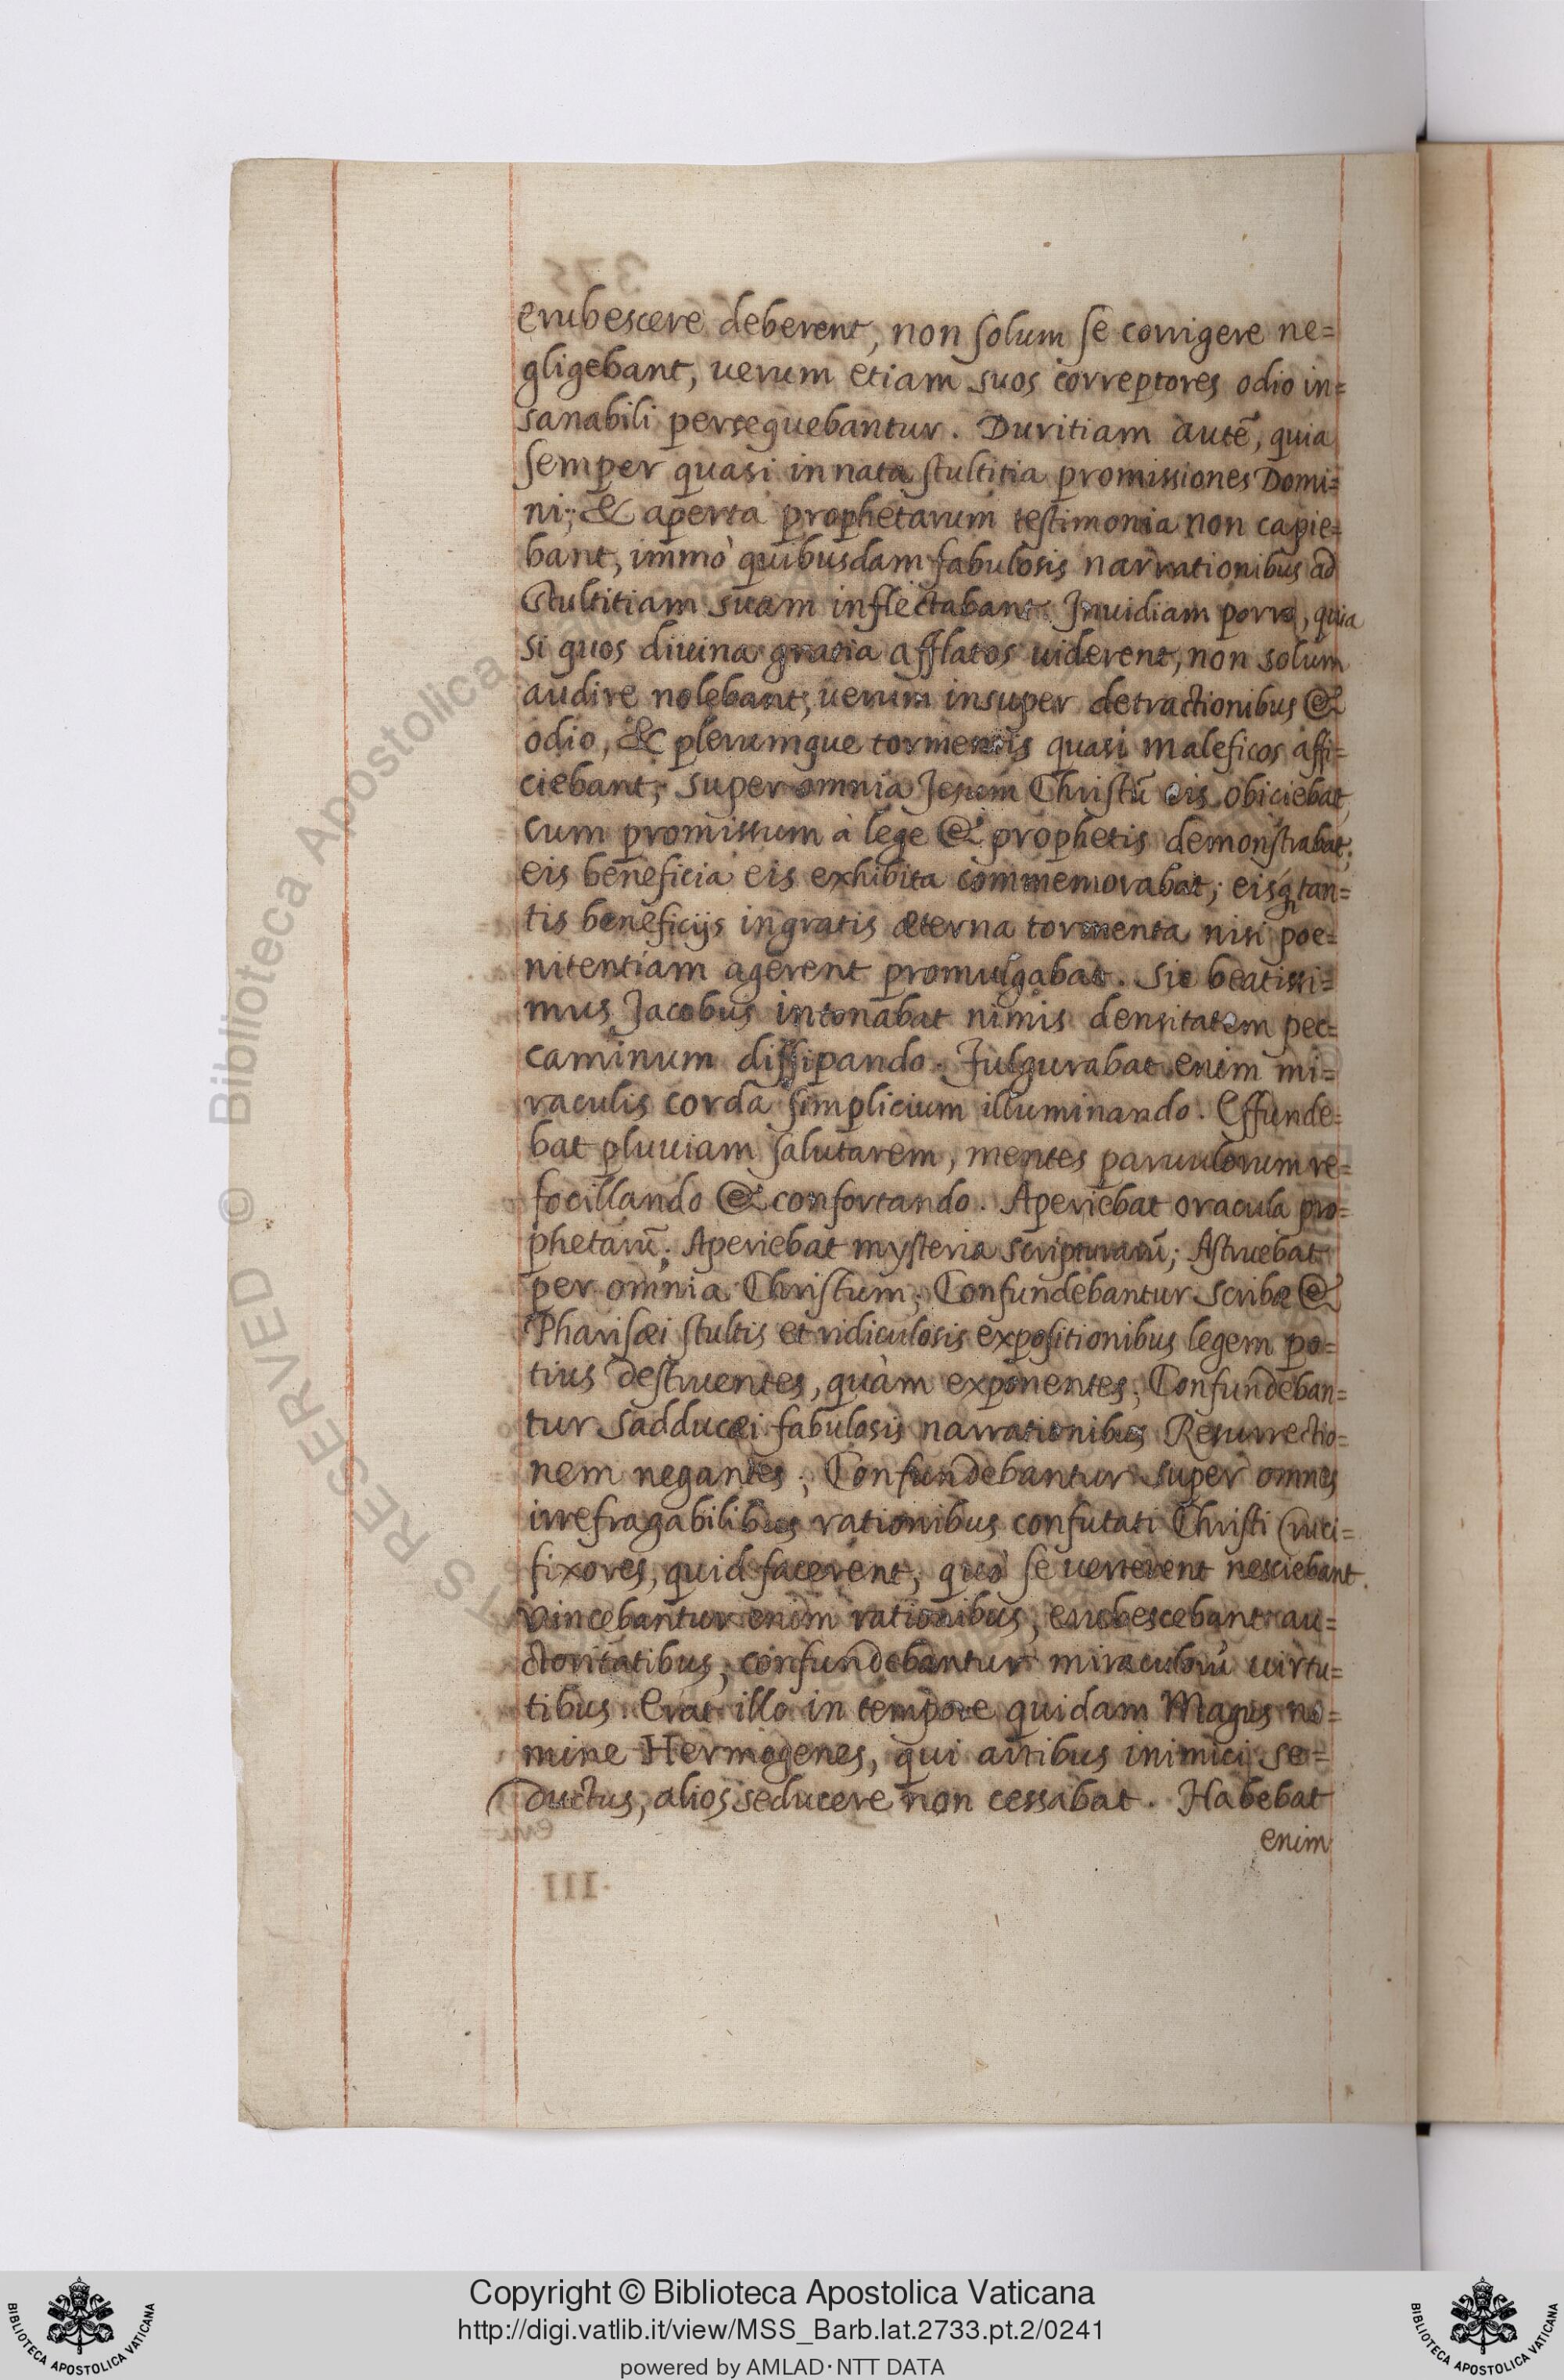 erubescere deberent, non solum se corrigere ne=
gligebant, uerum etiam suos correptores odio in=
sanabili persequebantur. Duritiam autē, quia
semper quasi innata stultitia promissiones Domi=
ni; & aperta prophetarum testimonia non capie=
bant, immò quibusdam fabulosis narrationibus ad
stultitiam suam inflectabant. Inuidiam porro, quia
si quos diuina gratia afflatos uiderent, non solum
audire nolebant, uerum insuper detractionibus &
odio, & plerumque tormentis quasi maleficos affi=
ciebant; super omnia Jesum Christū eis obiciebat,
cum promissum à lege & prophetis demonstrabat;
eis beneficia eis exhibita commemorabat; eisq́ tan=
tis beneficijs ingratis æterna tormenta nisi poe=
nitentiam agerent promulgabat. Sic beatissi=
mus Jacobus intonabat nimis densitatem pec=
caminum dissipando. Fulgurabat enim mi=
raculis corda simplicium illuminando. Effunde=
bat pluuiam salutarem, mentes paruulorum re=
focillando & confortando. Aperiebat oracula pro=
phetarū; Aperiebat mysteria scripturarū; Astruebat
per omnia Christum; Confundebantur Scribæ &
Pharisæi stultis et ridiculosis expositionibus legem po=
tius destruentes, quàm exponentes; Confundeban=
tur Sadducæi fabulosis narrationibus Resurrectio=
nem negantes; Confundebantur super omnes
irrefragabilibus rationibus confutati Christi Cruci=
fixores, quid facerent, quò se uerterent nesciebant.
Vincebantur enim rationibus, erubescebant au=
ctoritatibus, confundebantur miraculorū uirtu=
tibus. Erat illo in tempore quidam Magus no=
mine Hermogenes, qui artibus inimici se=
ductus, alios seducere non cessabat. Habebat
enim
Copyright © Biblioteca Apostolica Vaticana
http://digi.vatlib.it/view/MSS_Barb.lat.2733.pt.2/0241
powered by AMLAD·NTT DATA
BIBLIOTECA APOSTOLICA VATICANA
BIBLIOTECA APOSTOLICA VATICANA